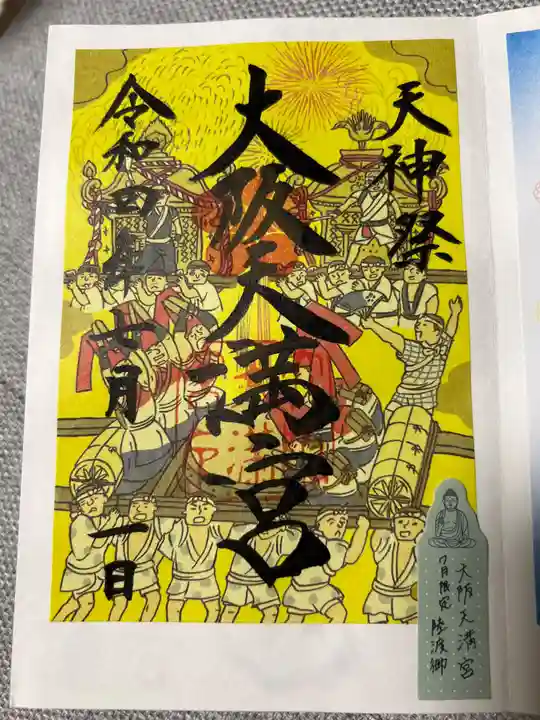 天神祭
大阪天満宮
令和四年七月一日
大阪天満宮
7月限定